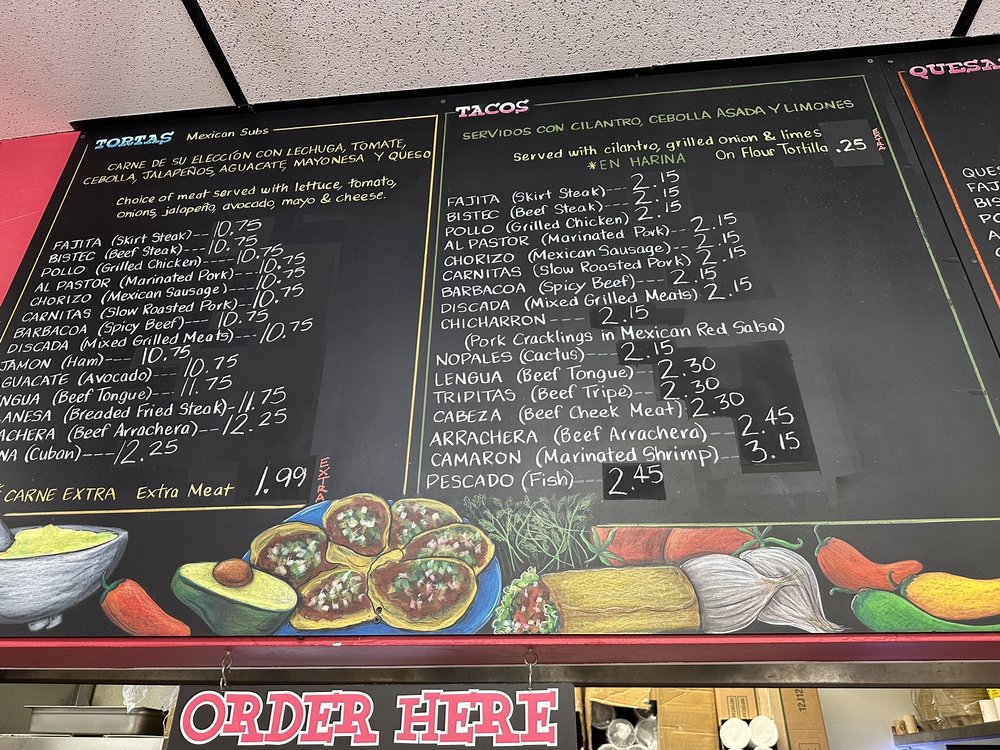 TORTAS Mexican Subs
CARNE DE SU ELECCIÓN CON LECHUGA, TOMATE,
CEBOLLA, JALAPEÑOS, AGUACATE, MAYONESA Y QUESO
Choice of meat served with lettuce, tomato,
onions, jalapeño, avocado, mayo & cheese.
FAJITA (Skirt Steak)--- 10.75
BISTEC (Beef Steak)--- 10.75
POLLO (Grilled Chicken)--- 10.75
AL PASTOR (Marinated Pork)--- 10.75
CHORIZO (Mexican Sausage)--- 10.75
CARNITAS (Slow Roasted Pork)-- 10.75
BARBACOA (Spicy Beef)--- 10.75
DISCADA (Mixed Grilled Meats)--- 10.75
JAMON (Ham)--- 10.75
GUACATE (Avocado)--- 10.75
NGUA (Beef Tongue)--- 11.75
LANESA (Breaded Fried Steak)- 11.75
ACHERA (Beef Arrachera)--- 12.25
NA (Cuban)--- 12.25
*CARNE EXTRA Extra Meat 1.99 EXTRA
TACOS
SERVIDOS CON CILANTRO, CEBOLLA ASADA Y LIMONES
Served with cilantro, grilled onion & limes
*EN HARINA On Flour Tortilla .25 EXTRA
FAJITA (Skirt Steak)--- 2.15
BISTEC (Beef Steak)--- 2.15
POLLO (Grilled Chicken) 2.15
AL PASTOR (Marinated Pork)-- 2.15
CHORIZO (Mexican Sausage)-- 2.15
CARNITAS (Slow Roasted Pork) 2.15
BARBACOA (Spicy Beef)--- 2.15
DISCADA (Mixed Grilled Meats) 2.15
CHICHARRON --- 2.15
(Pork Cracklings in Mexican Red Salsa)
NOPALES (Cactus)--- 2.15
LENGUA (Beef Tongue)--- 2.30
TRIPITAS (Beef Tripe)-- 2.30
CABEZA (Beef Cheek Meat) 2.30
ARRACHERA (Beef Arrachera)-- 2.45
CAMARON (Marinated Shrimp)-- 3.15
PESCADO (Fish)--- 2.45
QUESA
QUES
FAJ
BIS
PO
A
ORDER HERE